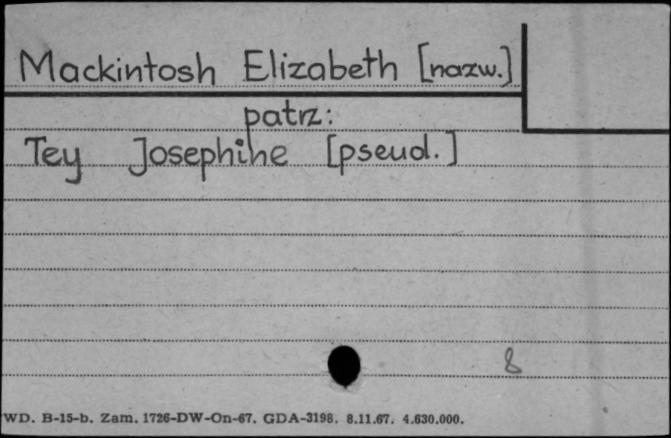 Mackintosh Elizabeth [nazw.]
patrz:
Tey Josephine [pseud.]
8
WD. B-15-b. Zam. 1726-DW-On-67. GDA-3198. 8.11.67. 4.630.000.